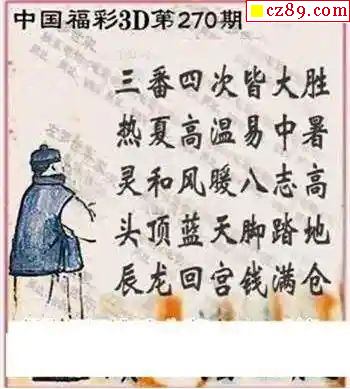 cz89.com
中国福彩3D第270期
三番四次皆大胜
热夏高温易中暑
灵和风暖八志高
头顶蓝天脚踏地
辰龙回宫钱满仓